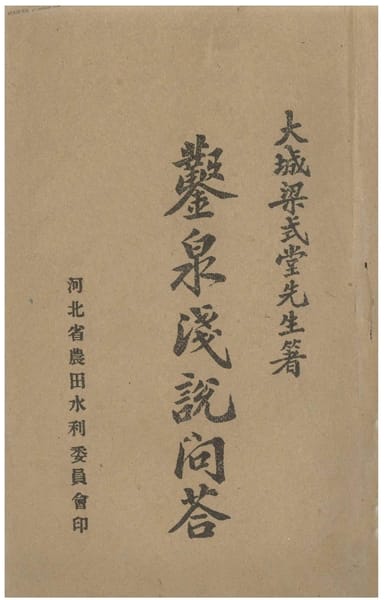 大城梁式堂先生箸
鑿泉淺說問荅
河北省農田水利委員會印